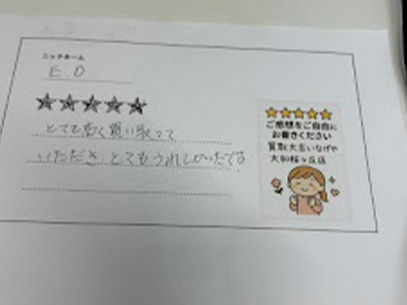 ニックネーム
E.O
★★★★★
とても高く買い取って
いただき とてもうれしかったです
★★★★★
ご感想をご自由に
お書きください
買取大吉いなげや
大和桜ヶ丘店